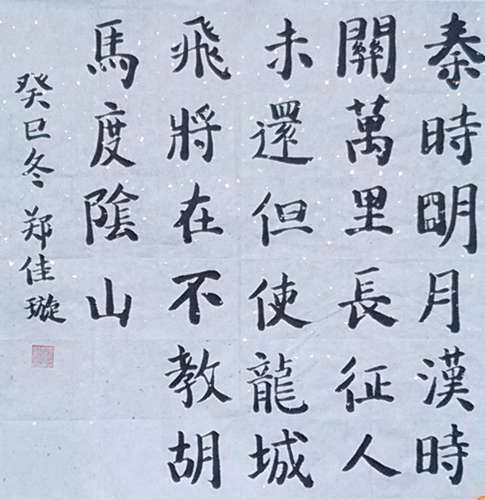 秦時明月漢時
關萬里長征人
未還但使龍城
飛將在不教胡
馬度陰山
癸巳冬 郑佳璇